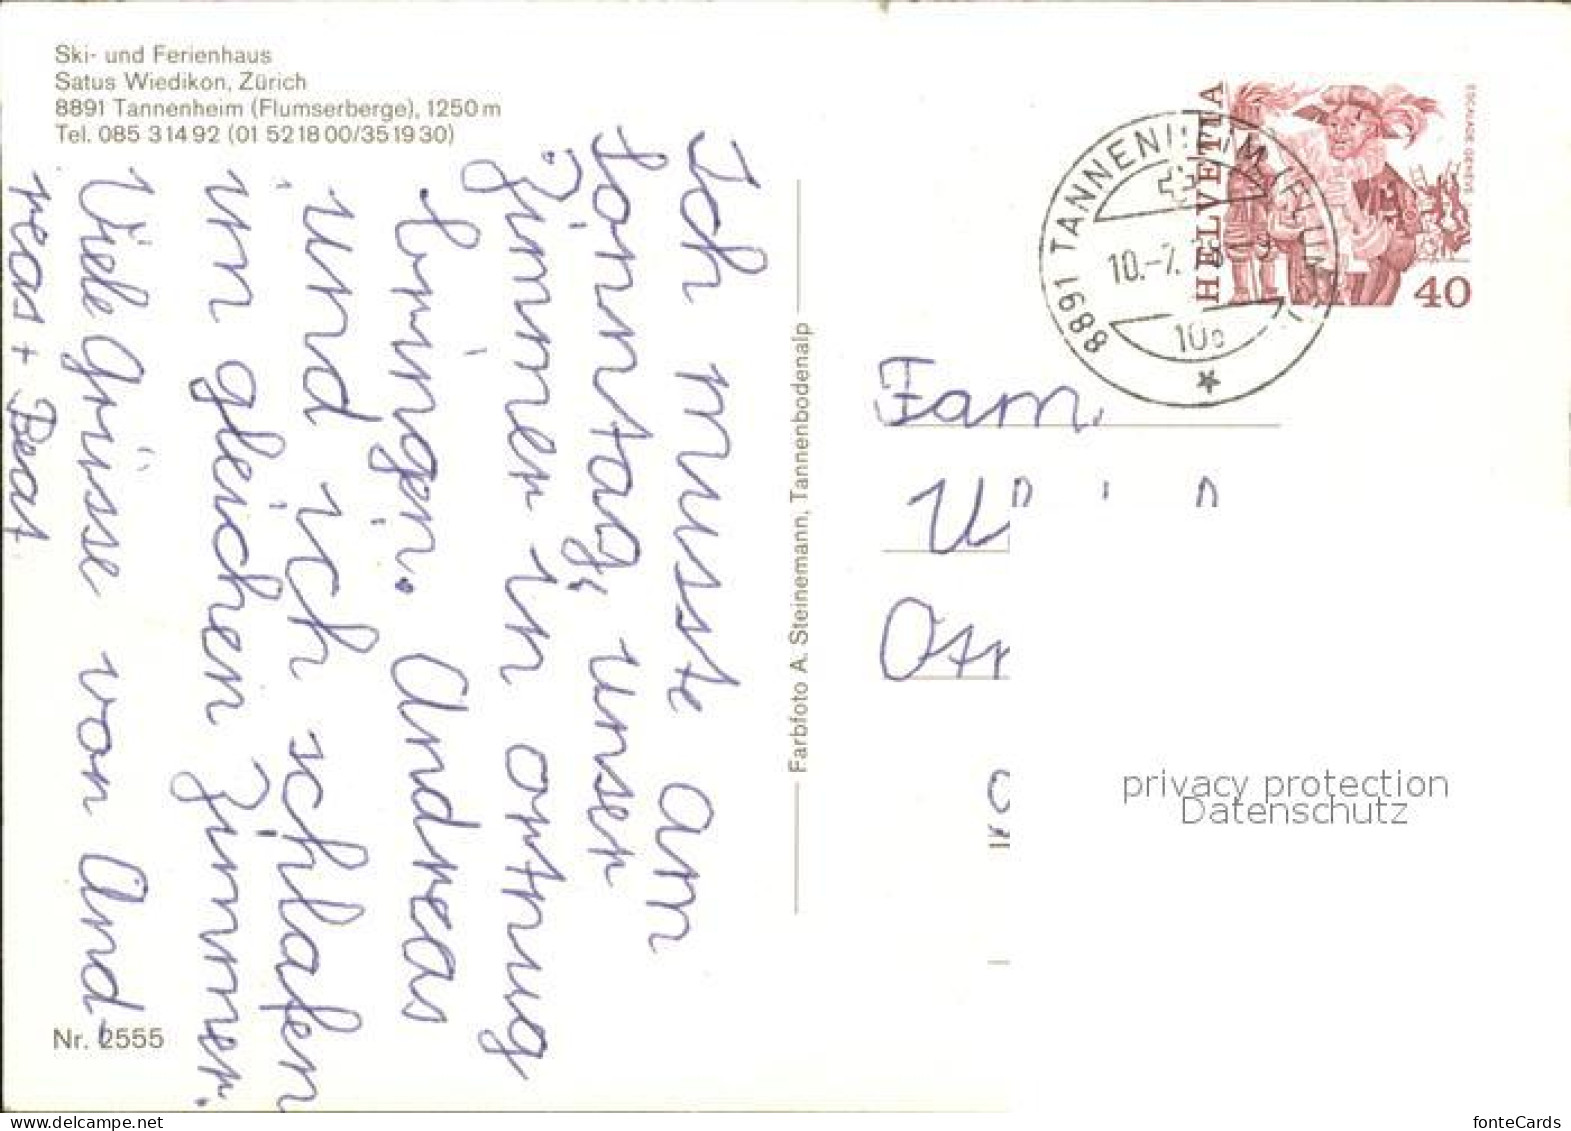 Ski- und Ferienhaus
Satus Wiedikon, Zürich
8891 Tannenheim (Flumserberge), 1250 m
Tel. 085 3 14 92 (01 52 18 00/35 19 30)
Ich musste am
Sonntag, unser
Zimmer in ortnug
bringen. Andreas
und ich schlafen
im gleichen Zimmer.
Viele Grüsse von And-
reas + Beat
Nr. 2555
Farbfoto A. Steinemann, Tannenbodenalp
HELVETIA
ESCALADE GENÈVE
40
8891 TANNENHEIM
10.-7.
Fam.
privacy protection
Datenschutz
fonteCards